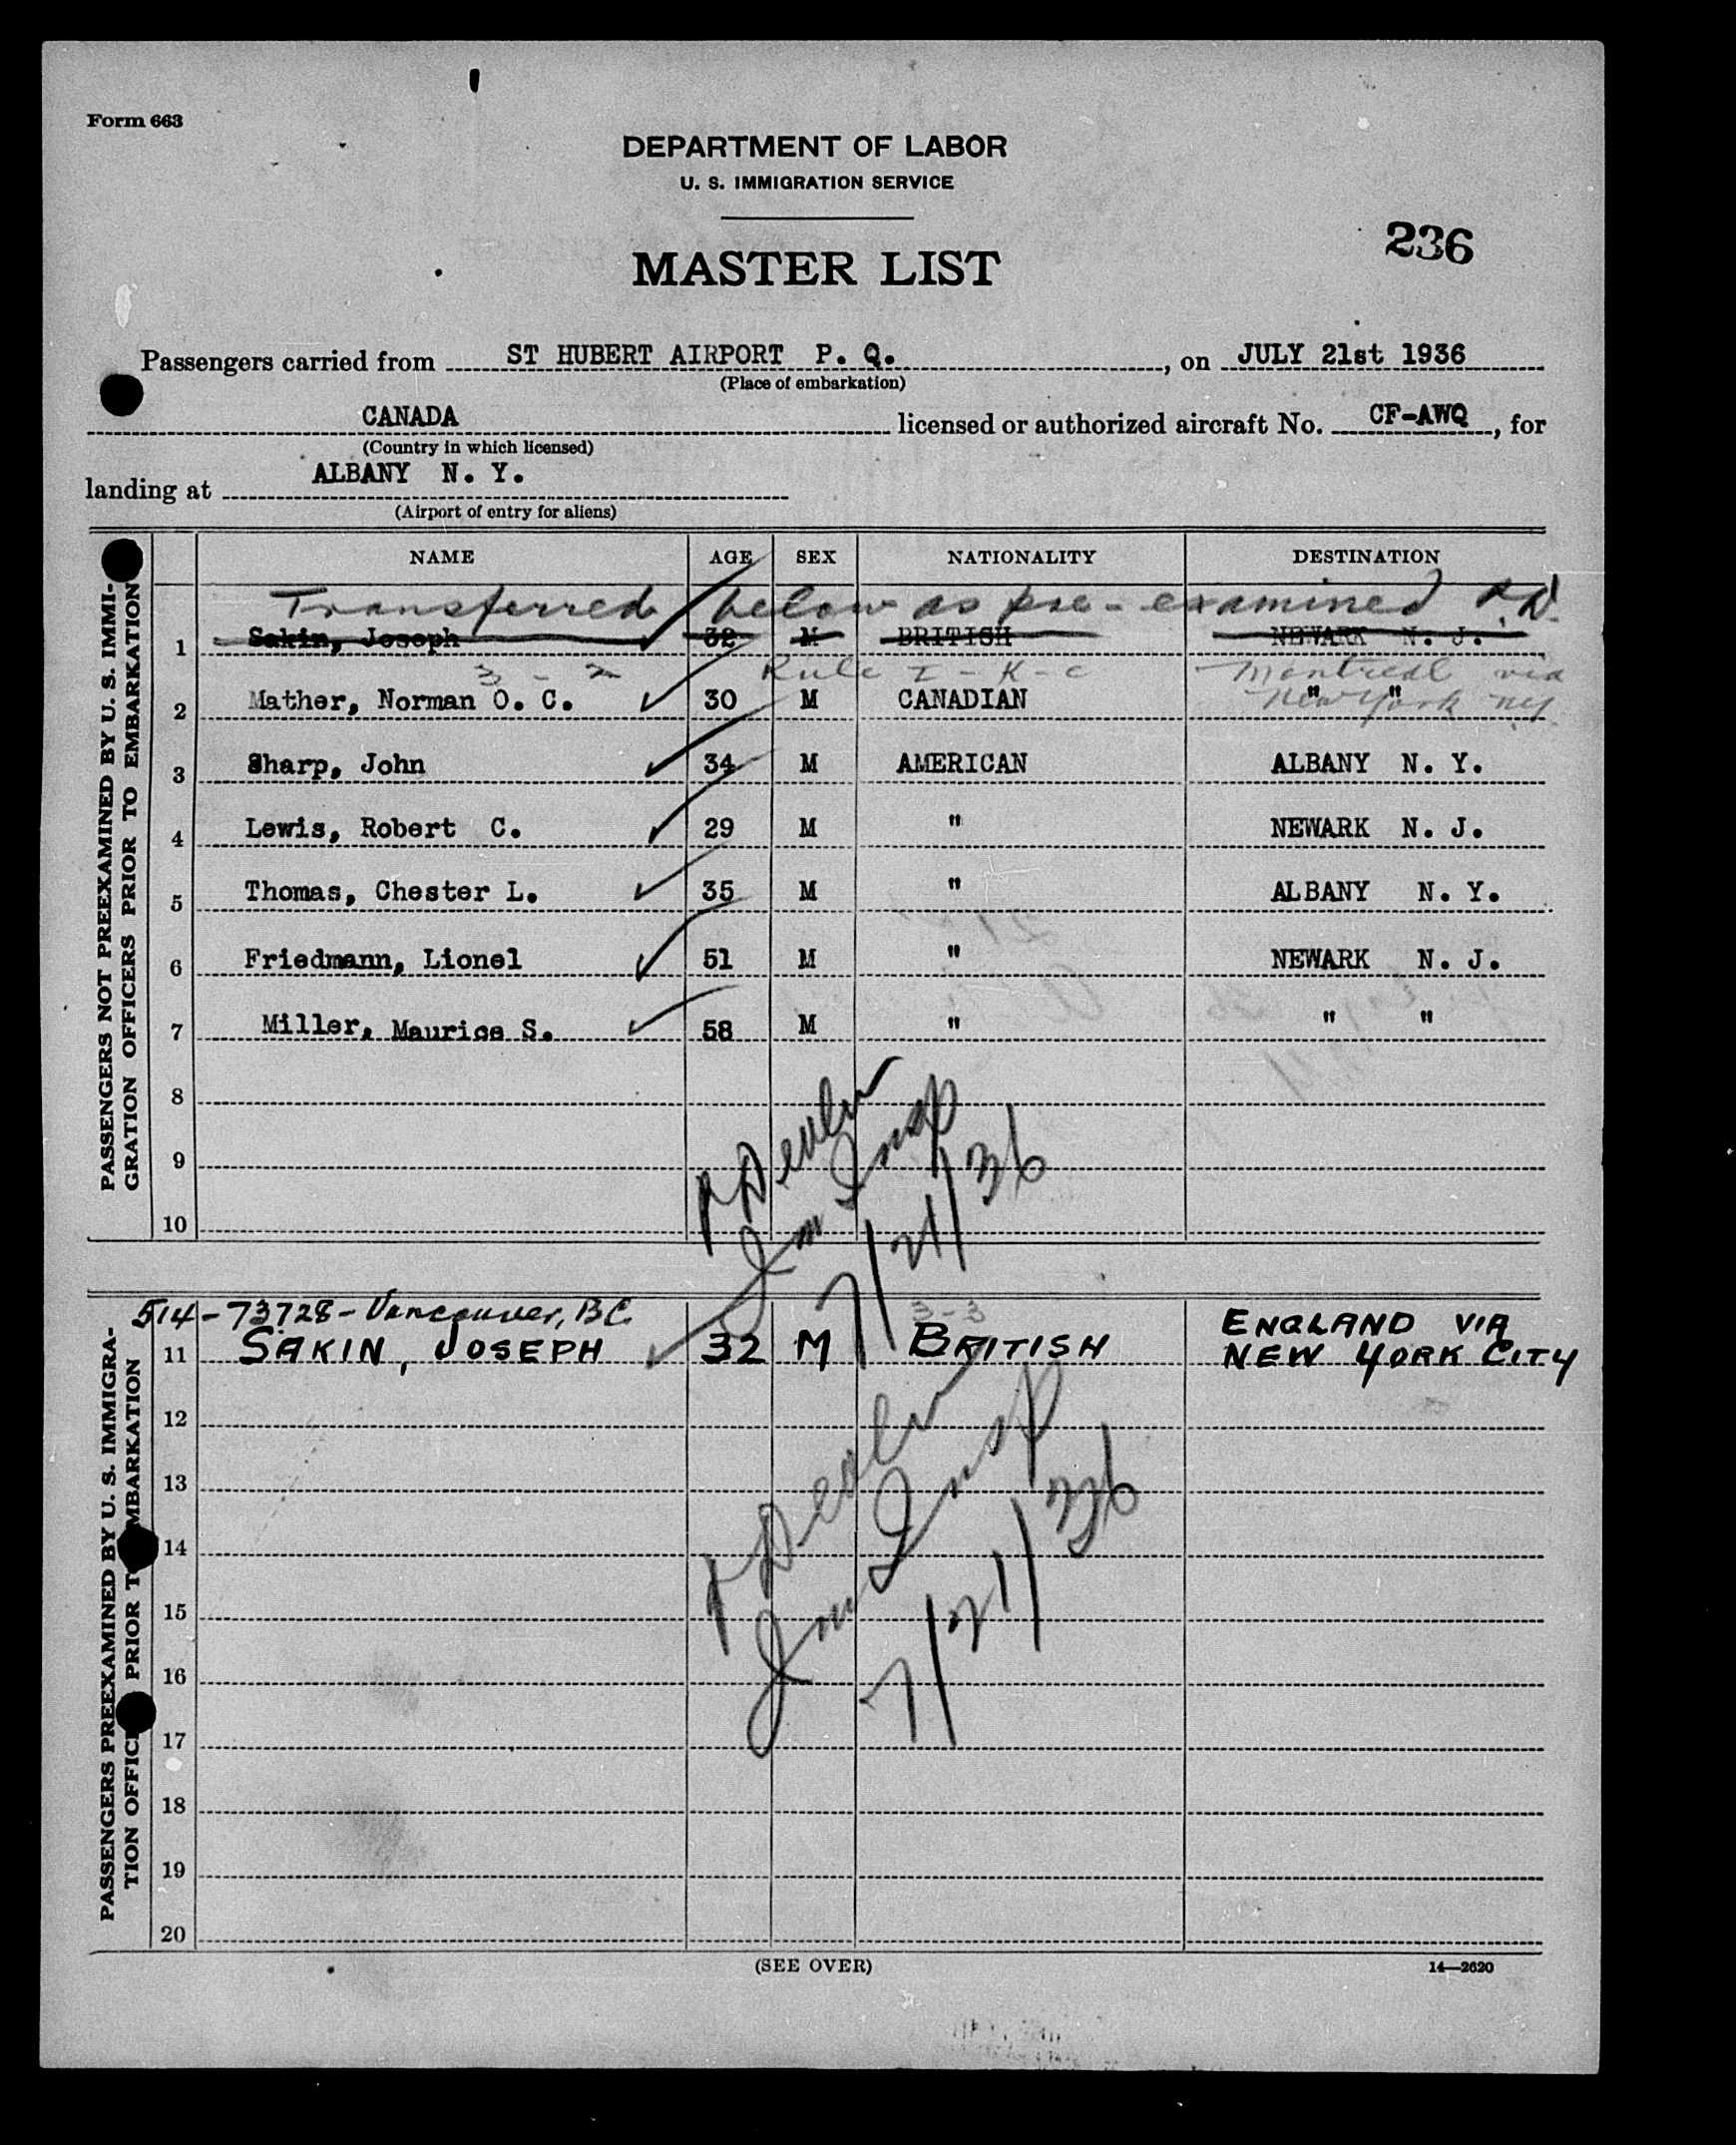 Form 663
DEPARTMENT OF LABOR
U. S. IMMIGRATION SERVICE
236
MASTER LIST
Passengers carried from ST HUBERT AIRPORT P. Q., on JULY 21st 1936
(Place of embarkation)
CANADA licensed or authorized aircraft No. CF-AWQ, for
(Country in which licensed)
landing at ALBANY N. Y.
(Airport of entry for aliens)
NAME AGE SEX NATIONALITY DESTINATION
PASSENGERS NOT PREEXAMINED BY U. S. IMMI-
GRATION OFFICERS PRIOR TO EMBARKATION
Transferred below as pre-examined
1 Sakin, Joseph 32 M BRITISH NEWARK N. J.
3 - 2 Rule I - K - c Montreal via
2 Mather, Norman O. C. 30 M CANADIAN " "
New York NY
3 Sharp, John 34 M AMERICAN ALBANY N. Y.
4 Lewis, Robert C. 29 M " NEWARK N. J.
5 Thomas, Chester L. 35 M " ALBANY N. Y.
6 Friedmann, Lionel 51 M " NEWARK N. J.
7 Miller, Maurice S. 58 M " " "
8
9
10
Im Insp
7/21/36
PASSENGERS PREEXAMINED BY U. S. IMMIGRA-
TION OFFIC PRIOR T MBARKATION
514-73728-Vancouver, B.C. 3-3 ENGLAND VIA
11 SAKIN, JOSEPH 32 M BRITISH NEW YORK CITY
12
13
14
15
16
17
18
19
20
Im Insp
7/21/36
(SEE OVER)
14—2620